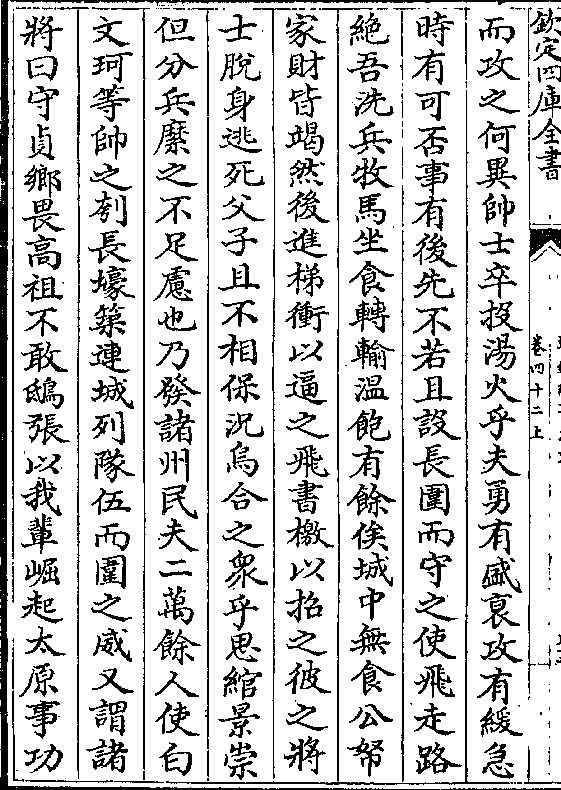 欽定四庫全書
卷四十二上
而攻之何異帥士卒投湯火乎夫勇有盛衰攻有緩急
時有可否事有後先不若且設長圍而守之使飛走路
絶吾洗兵牧馬坐食轉輸溫飽有餘俟城中無食公帑
家財皆竭然後進梯衝以逼之飛書檄以招之彼之將
士脫身逃死父子且不相保況烏合之衆乎思綰景崇
但分兵縻之不足慮也乃發諸州民夫二萬餘人使白
文珂等帥之刳長壕築連城列隊伍而圍之威又謂諸
將曰守貞鄉畏高祖不敢鴟張以我輩崛起太原事功